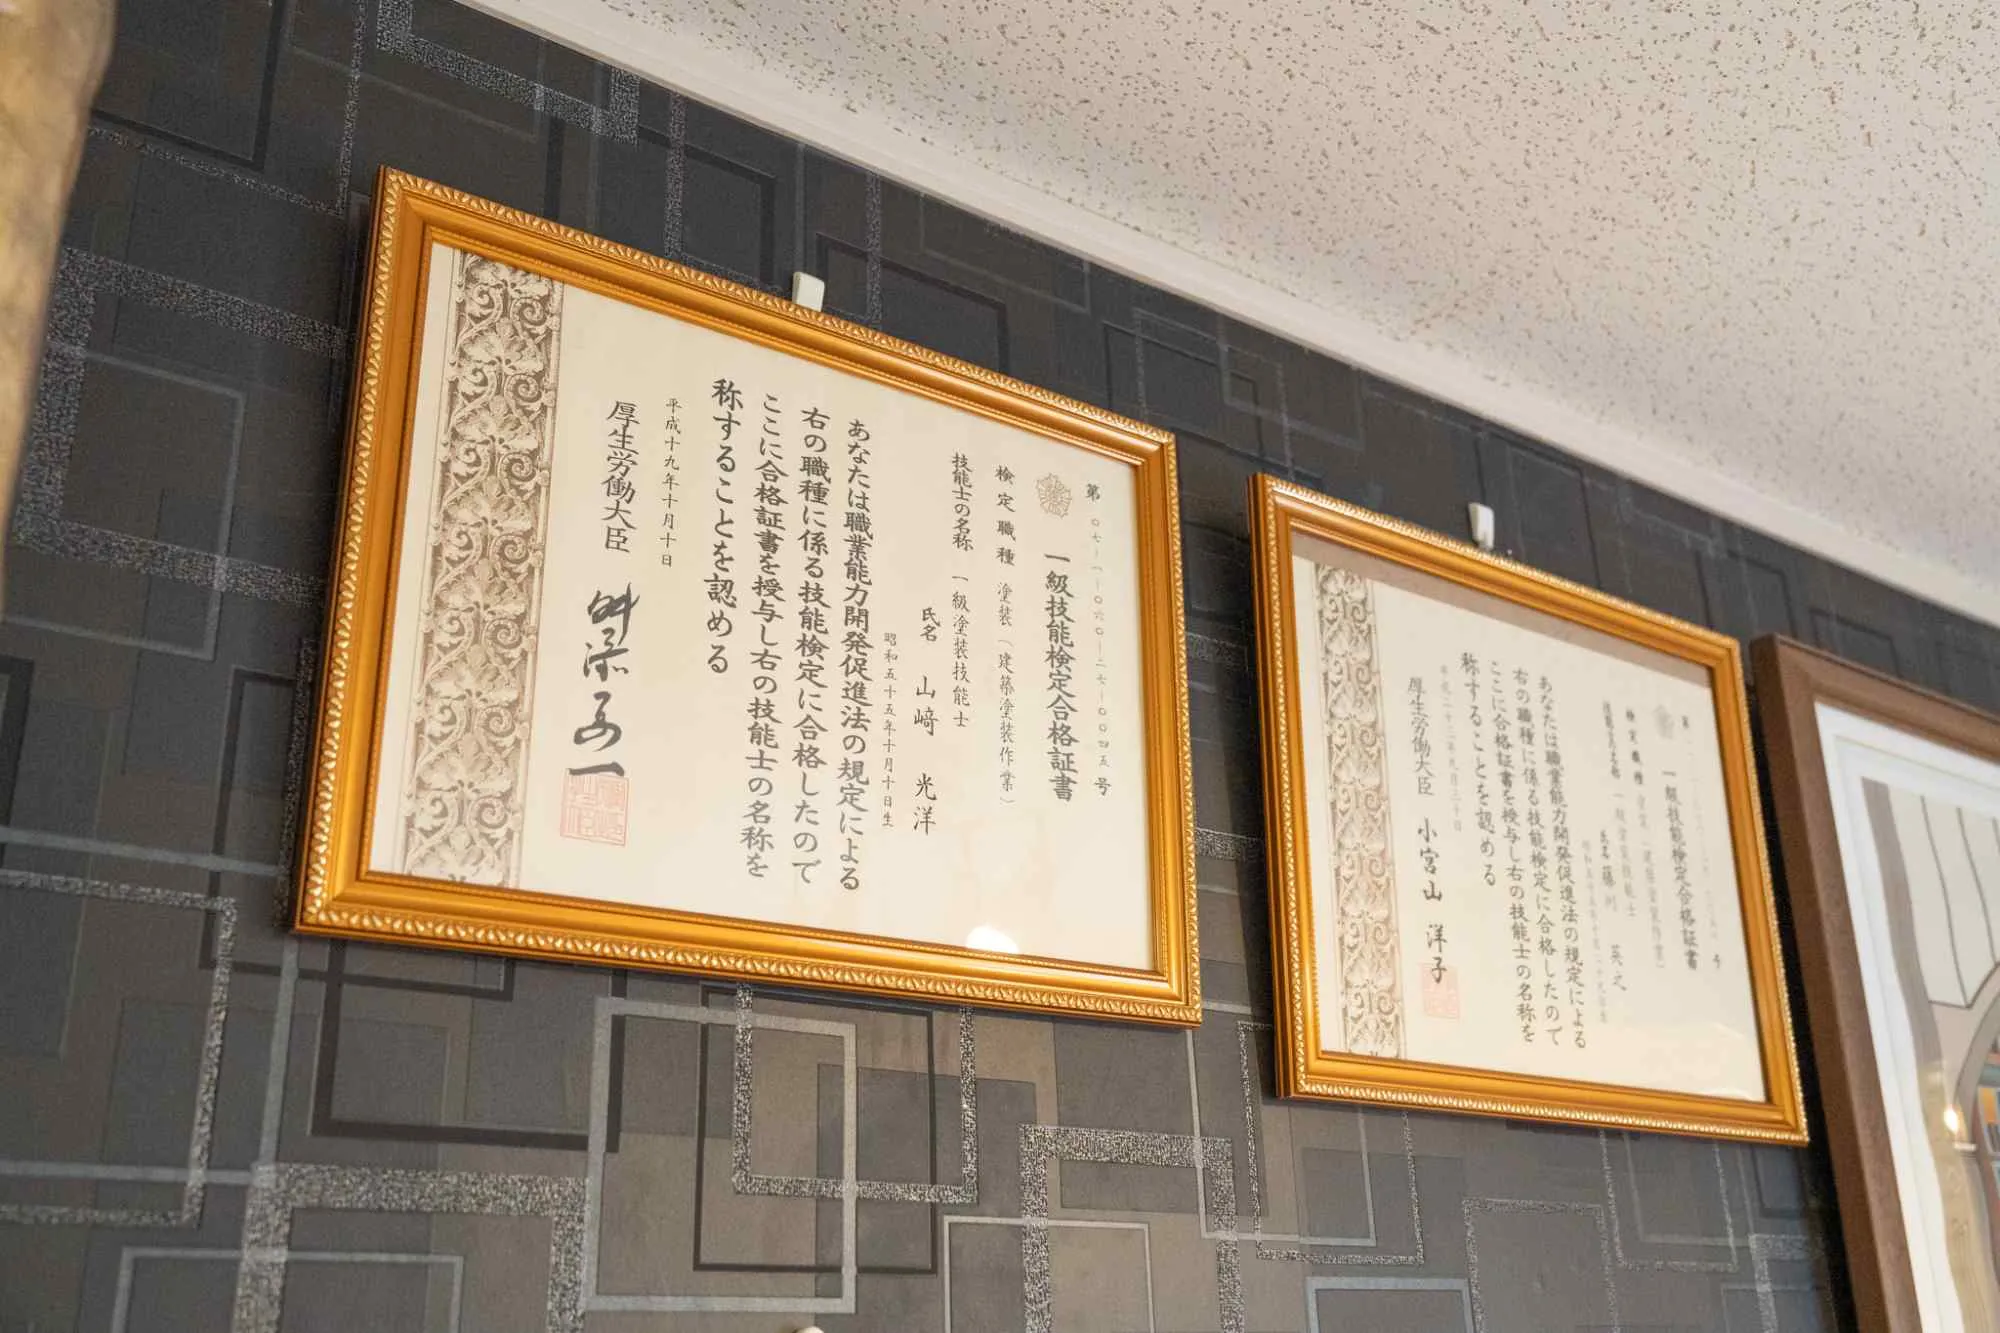 第 〇七-一-〇六〇-二七-一〇〇四五号
一級技能検定合格証書
検定職種 塗装(建築塗装作業)
技能士の名称 一級塗装技能士
氏名 山﨑 光洋
昭和五十五年十月十日生
あなたは職業能力開発促進法の規定による
右の職種に係る技能検定に合格したので
ここに合格証書を授与し右の技能士の名称を
称することを認める
平成十九年十月十日
厚生労働大臣 舛添要一
第
一級技能検定合格証書
検定職種 塗装(建築塗装作業)
技能士の名称 一級塗装技能士
氏名 藤 英之
あなたは職業能力開発促進法の規定による
右の職種に係る技能検定に合格したので
ここに合格証書を授与し右の技能士の名称を
称することを認める
厚生労働大臣 小宮山 洋子